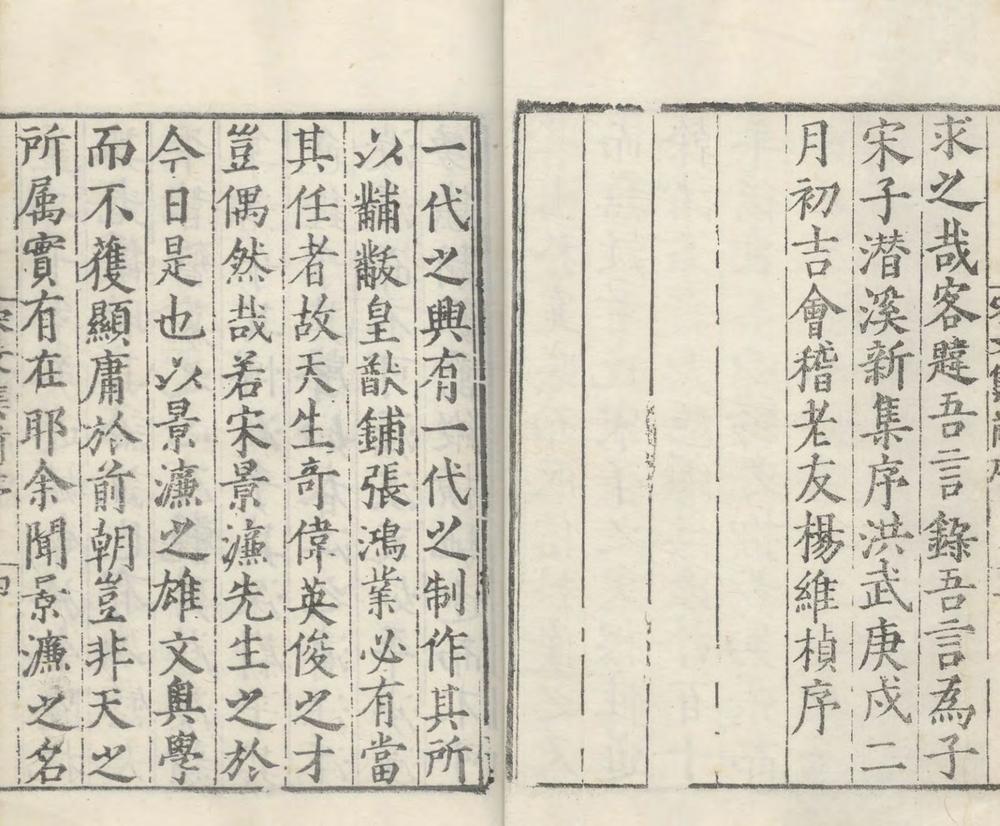 求之哉客韙吾言錄吾言為子
宋子潜溪新集序洪武庚戍二
月初吉會稽老友楊維楨序
一代之興有一代之制作其所
以黼黻皇猷鋪張鴻業必有當
其任者故天生奇偉英俊之才
豈偶然哉若宋景濂先生之於
今日是也以景濂之雄文奧學
而不獲顯庸於前朝豈非天之
所属實有在耶余聞景濂之名